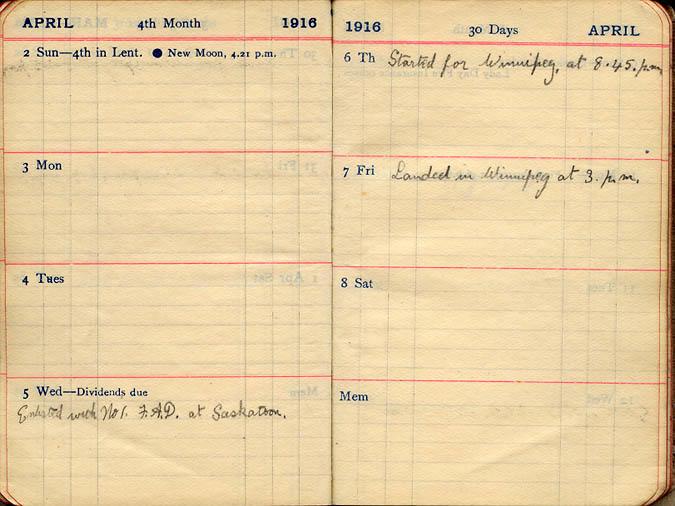 APRIL 4th Month 1916
2 Sun—4th in Lent. ● New Moon, 4.21 p.m.
3 Mon
4 Tues
5 Wed—Dividends due
Enlisted with No 1. F.A.D. at Saskatoon.
1916 30 Days APRIL
6 Th Started for Winnipeg, at 8.45. p.m.
7 Fri Landed in Winnipeg at 3. p.m.
8 Sat
Mem